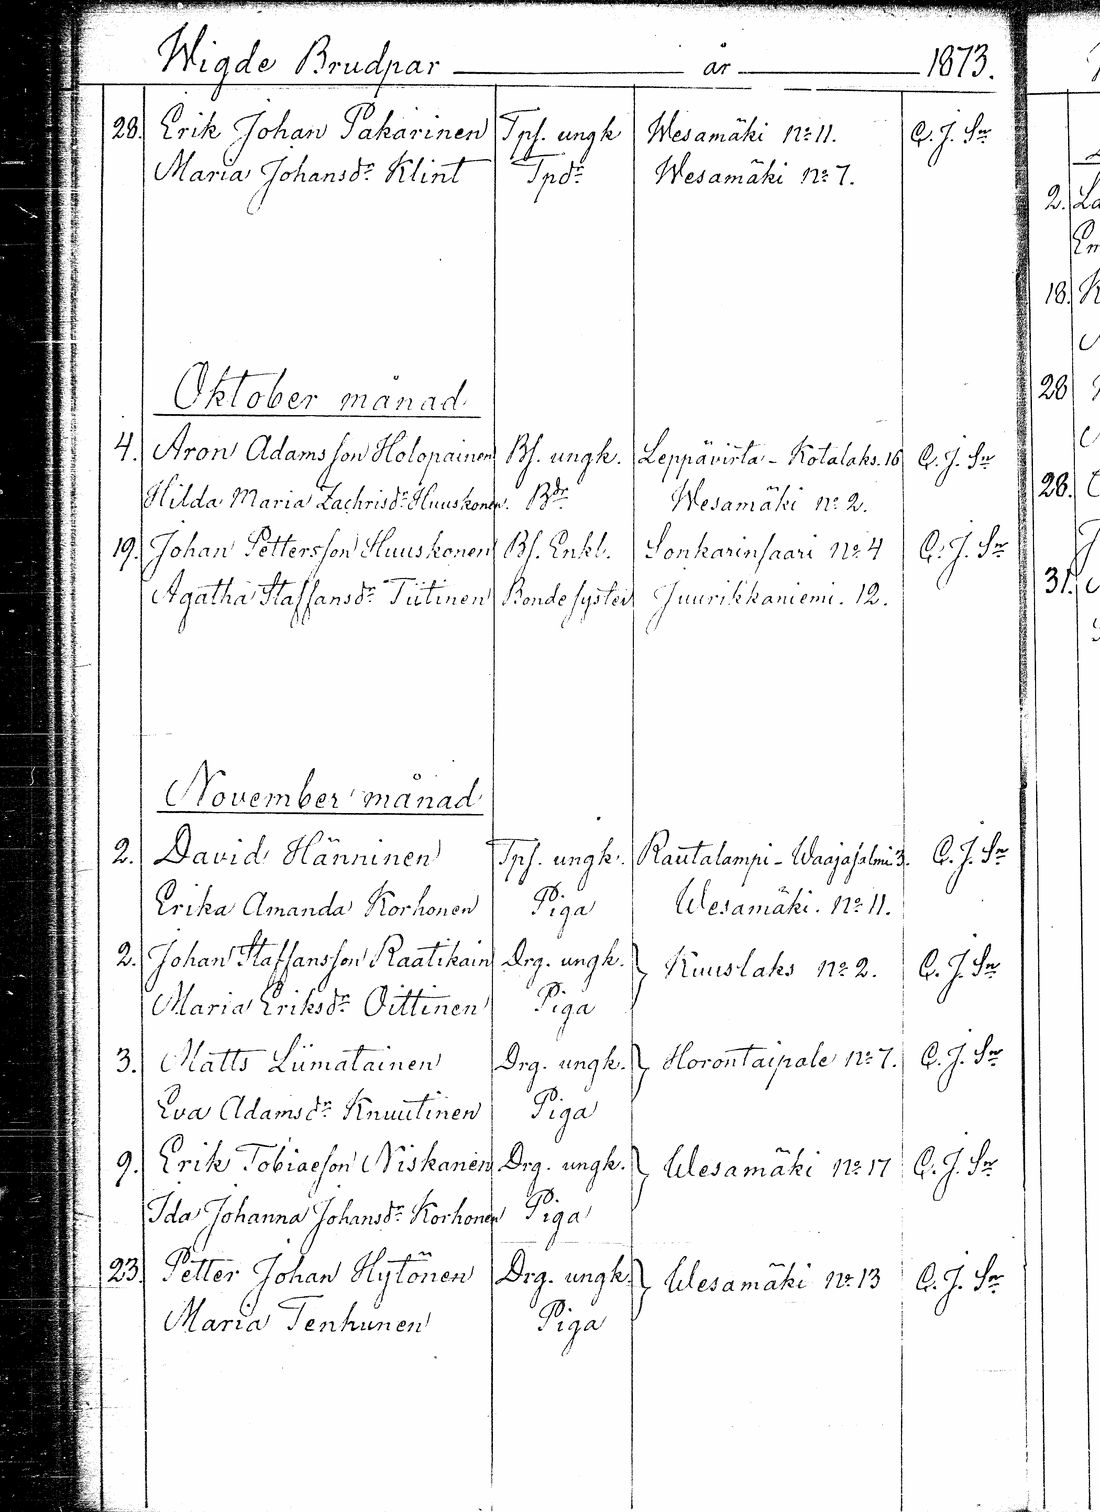 Wigde Brudpar år 1873.
28. Erik Johan Pakarinen Tps. ungk Wesamäki No 11. C. J. Sn
Maria Johansdr Klint Tpdr Wesamäki No 7.
Oktober månad
4. Aron Adamsson Holopainen Bs. ungk. Leppävirta - Kotalaks. 16 C. J. Sn
Hilda Maria Zachrisdr Huuskonen. Bdr. Wesamäki No 2.
19. Johan Pettersson Huuskonen Bs. Enkl. Sonkarinsaari No 4 C. J. Sn
Agatha Staffansdr Tiitinen Bondesyster Juurikkaniemi. 12.
November månad
2. David Hänninen Tps. ungk. Rautalampi - Waajasalmi 3. C. J. Sn
Erika Amanda Korhonen Piga Wesamäki. No 11.
2. Johan Staffansson Raatikain Drg. ungk. } Kuuslaks No 2. C. J. Sn
Maria Eriksdr Oittinen Piga
3. Matts Liimatainen Drg. ungk. } Horontaipale No 7. C. J. Sn
Eva Adamsdr Knuutinen Piga
9. Erik Tobiaeson Niskanen Drg. ungk. } Wesamäki No 17 C. J. Sn
Ida Johanna Johansdr Korhonen Piga
23. Petter Johan Hytönen Drg. ungk. } Wesamäki No 13 C. J. Sn
Maria Tenhunen Piga
2. 
18. 
28
28.
31.